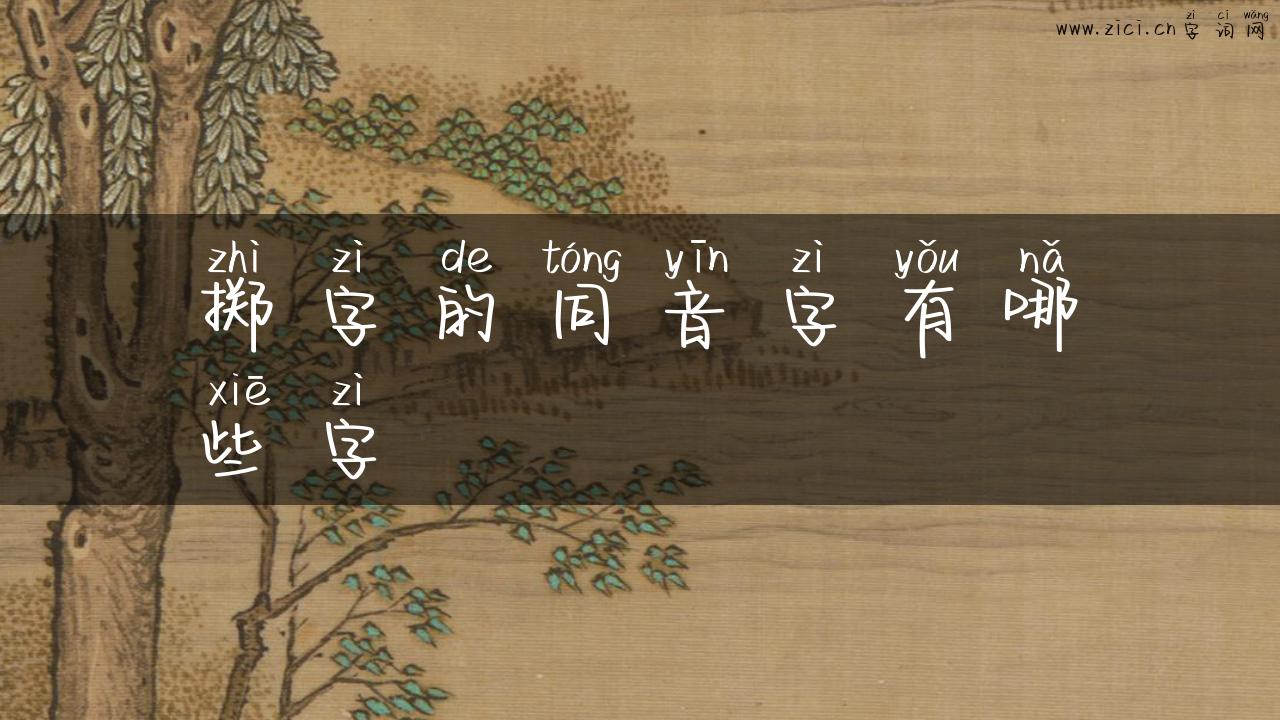 zì cí wǎng
www.zici.cn 字词网
zhì zì de tóng yīn zì yǒu nǎ
掷字的同音字有哪
xiē zì
些字